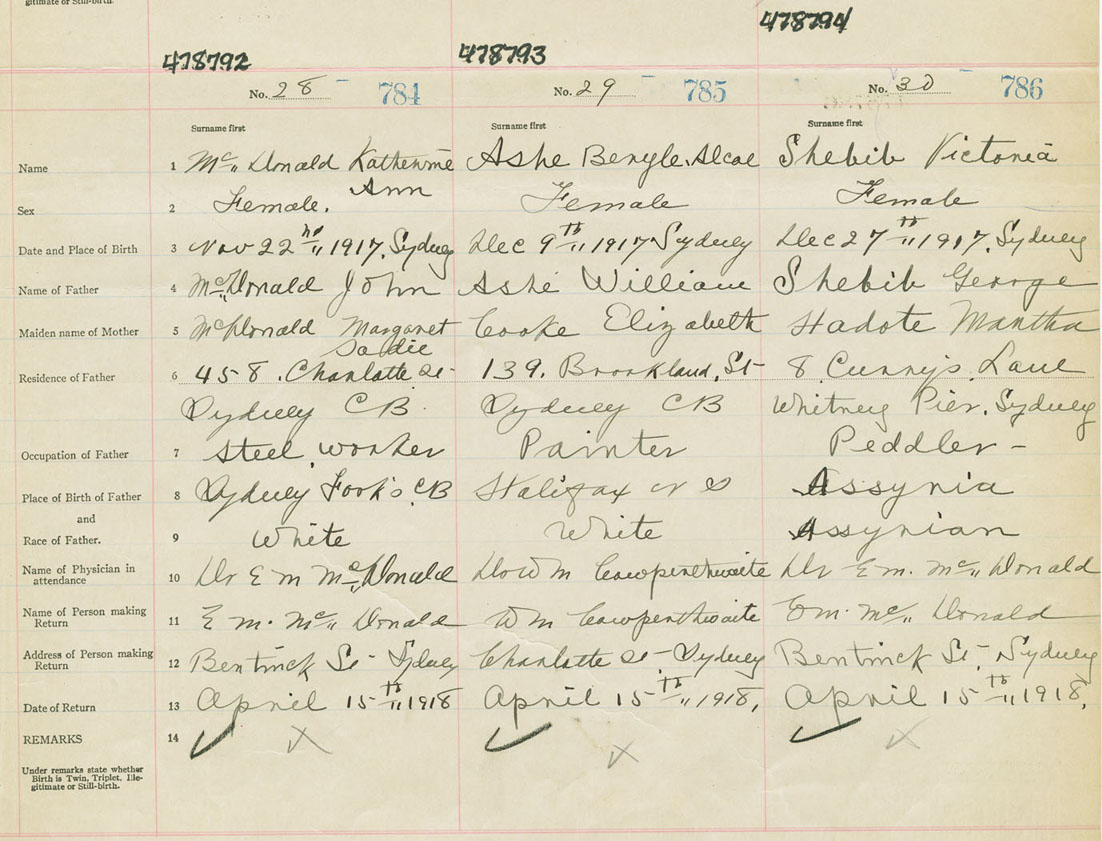 gitimate or Still-birth.
478792 478793 478794
No. 28 784 No. 29 785 No. 30 786
Surname first Surname first Surname first
Name 1 Mc Donald Katherine Ashe Beryle Shebib Victoria
Ann
Sex 2 Female. Female Female
Date and Place of Birth 3 Nov 22nd 1917, Sydney Dec 9th 1917 Sydney Dec 27th 1917, Sydney
Name of Father 4 McDonald John Ashe William Shebib George
Maiden name of Mother 5 McDonald Margaret Cooke Elizabeth Hadote Martha
Sadie
Residence of Father 6 458. Charlotte St 139. Brookland, St 8 Curry's Lane
Sydney CB. Sydney CB Whitney Pier, Sydney
Occupation of Father 7 Steel worker Painter Peddler -
Place of Birth of Father 8 Sydney Forks CB Halifax N S Assyria
and
Race of Father. 9 White White Assyrian
Name of Physician in
attendance 10 Dr E M McDonald Wm Cowperthwaite Dr E M. Mc Donald
Name of Person making
Return 11 E M. Mc Donald Wm Cowperthwaite E M. Mc Donald
Address of Person making
Return 12 Bentinck St - Sydney Charlotte St - Sydney Bentinck St, Sydney
Date of Return 13 April 15th 1918 April 15th 1918, April 15th 1918,
REMARKS 14
Under remarks state whether
Birth is Twin, Triplet, Ille-
gitimate or Still-birth.